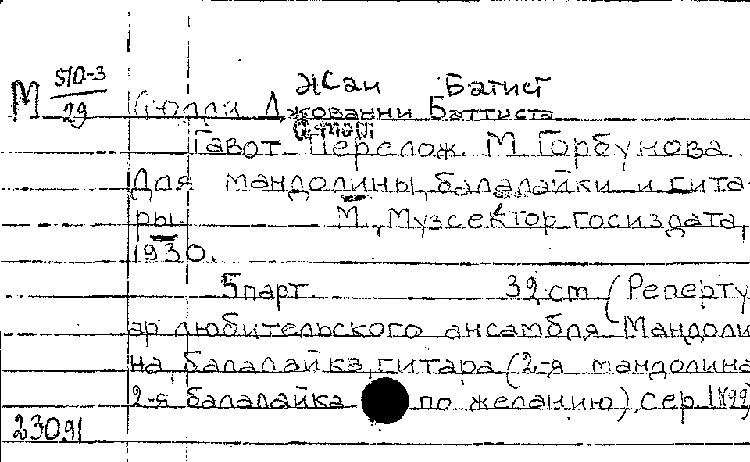 Жан Батист
М 510-3/29 Люлли Джованни Баттиста
Гавот. Перелож. М. Горбунова
Для мандолины, балалайки и гита-
ры. М., Музсектор Госиздата,
1930.
5 парт. 32 cm (Реперту-
ар любительского ансамбля. Мандоли-
на, балалайка, гитара (2-я мандолина
2-я балалайка по желанию), сер.
23091